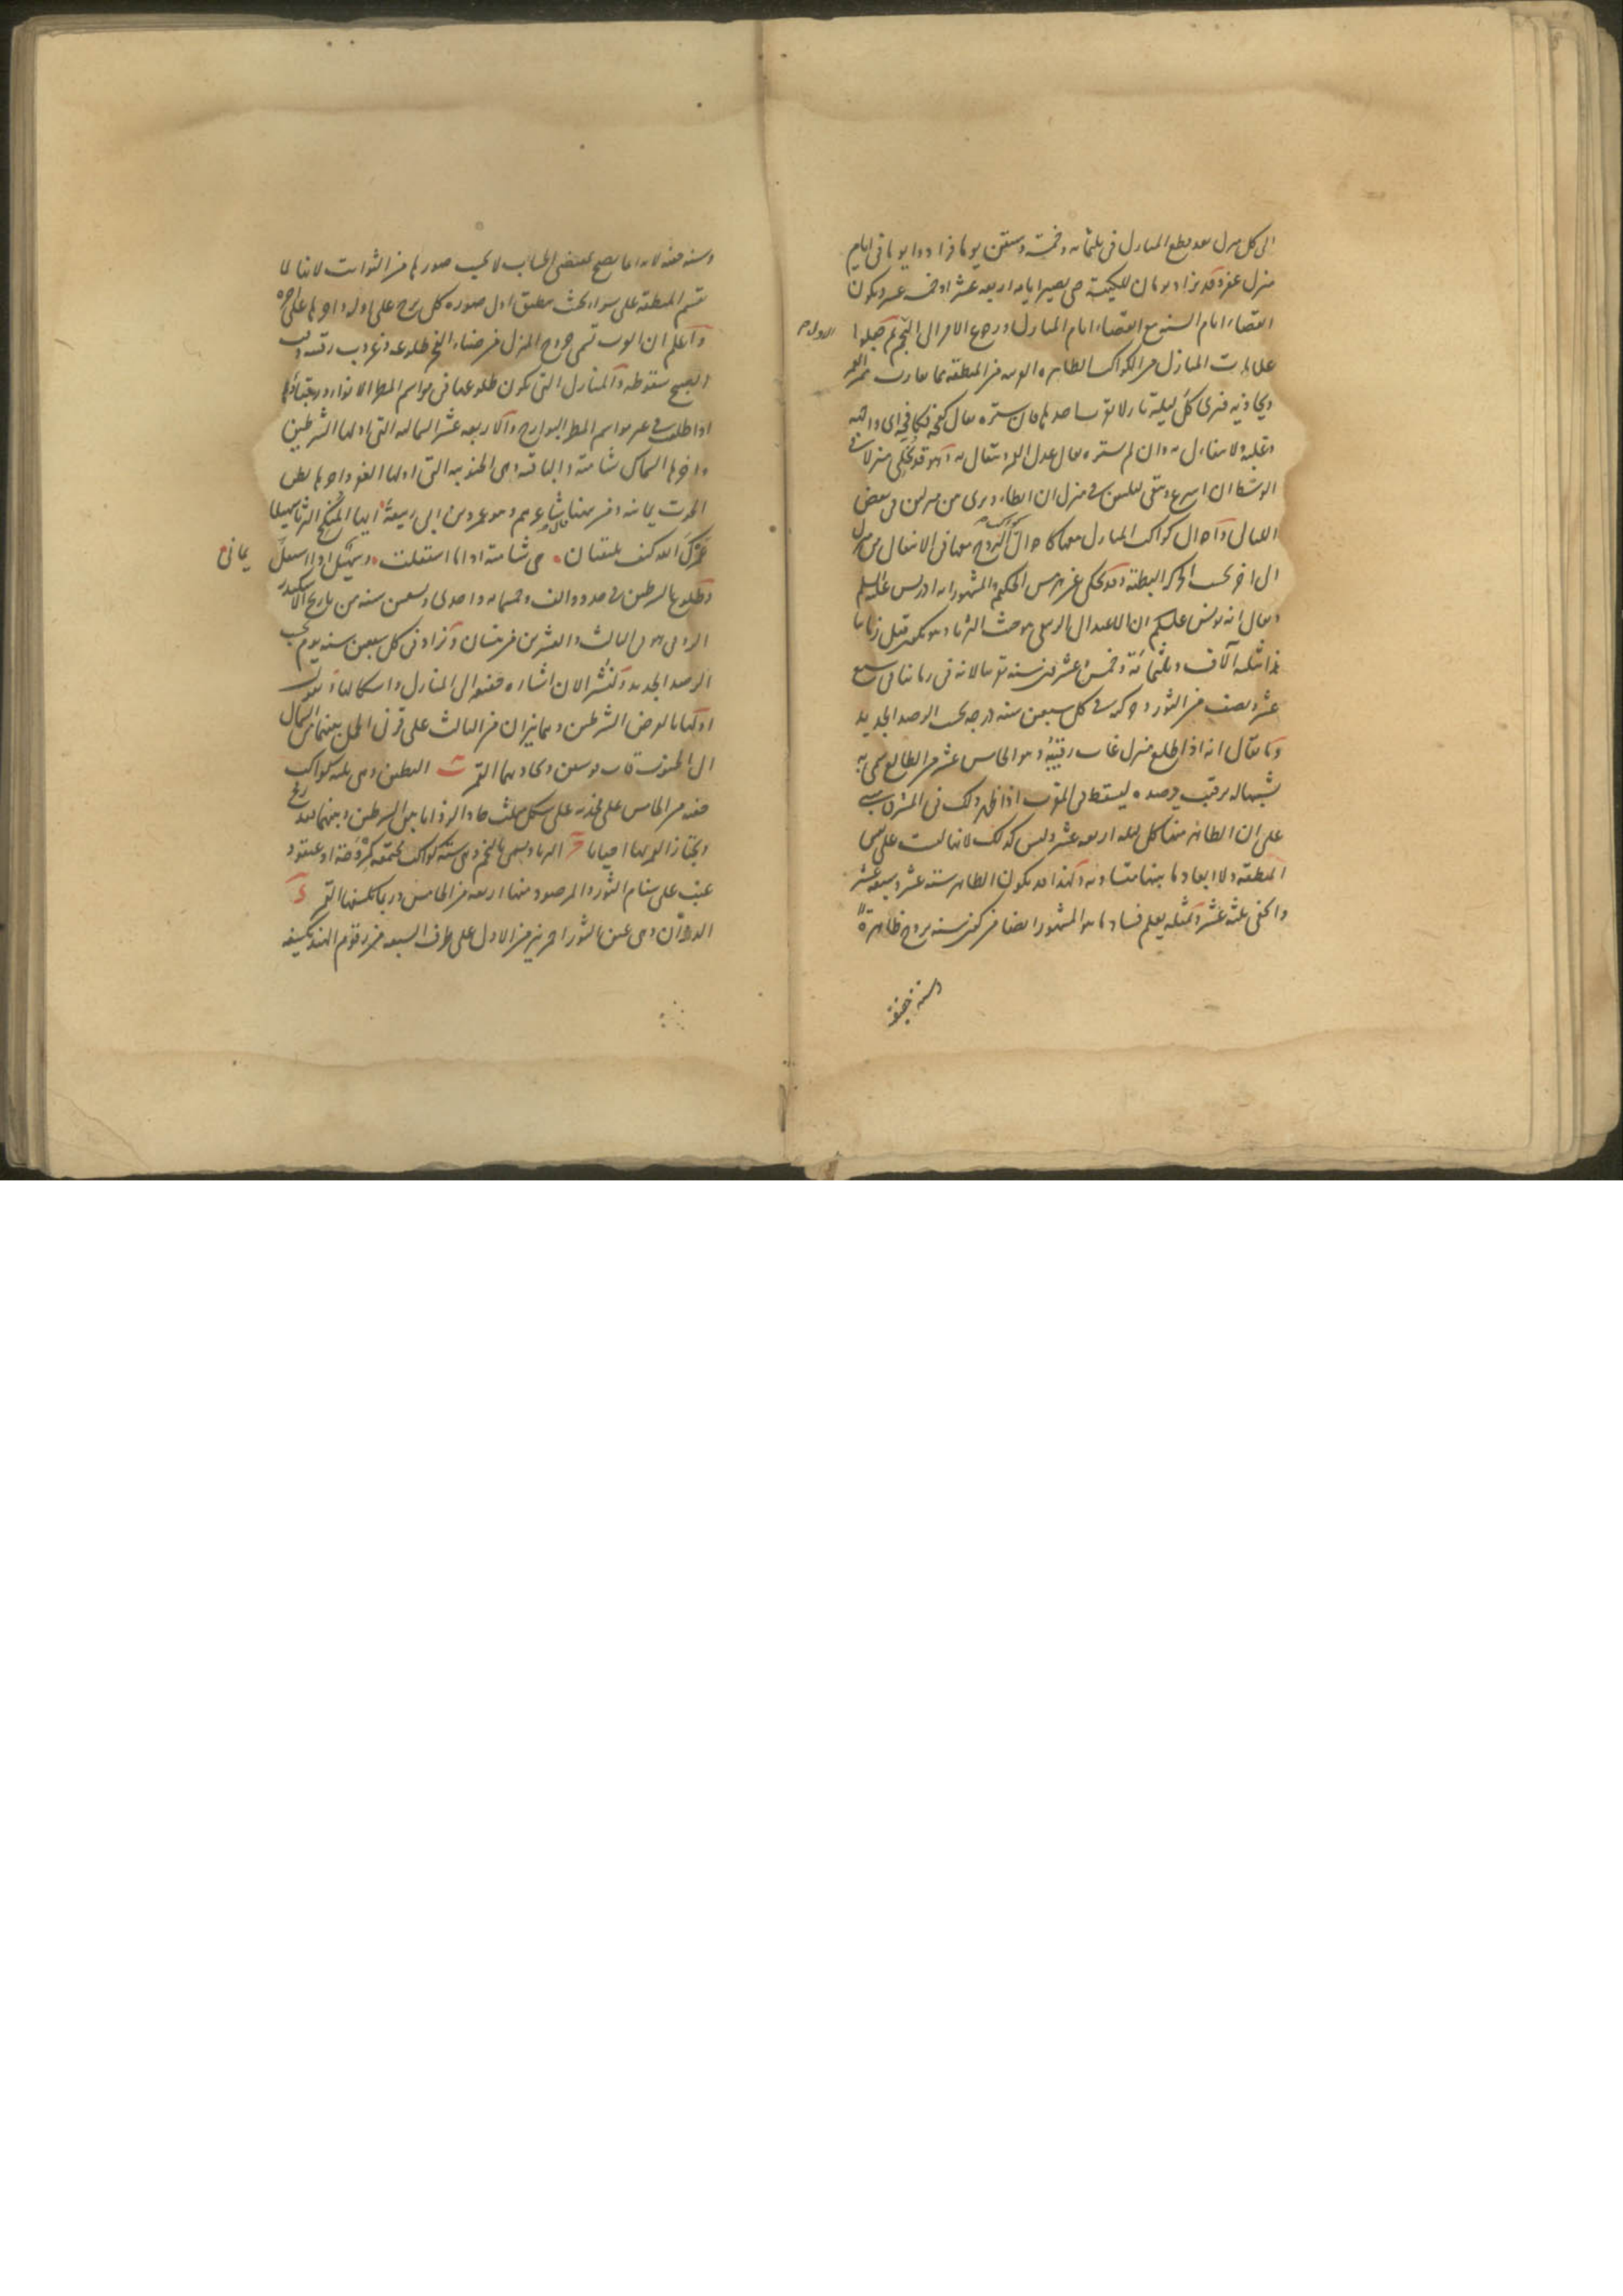 الى كل منزل بعد قطع المنازل فى ثلثمائه وخمسة وستين يوما فزادوا يوما فى ايام
منزل غفر وقد يزاد يومان للكبيسة حتى يصير ايامه اربعه عشر او خمسه عشر ويكون
انقضاء ايام السنه مع انقضاء ايام المنازل ورجوع الامر الى النجم ثم جعلوا
علامات المنازل من الكواكب الظاهره القريبه من المنطقه مما يقارب ممر القمر
ويحاذيه فيرى كل ليلة نازلا بقرب احدها فان ستره يقال كفحه فكافحه اى واجهه
وغلبه ولا يتفاءل به وان لم يستره يقال عدل القمر ويتفال به وقد يخلى منزلا فى
الوسط ان اسرع ويبقى ليلتين فى منزل ان ابطاء ويرى بين منزلين فى بعض
الليالى واحوال كواكب المنازل معها كاحوال كواكب البروج معها فى الانتقال من منزل
الى اخر بحسب الحركه البطيئة وقد يحكى عن هرمس الحكيم والمشهور انه ادريس عليه السلم
ويقال انه يونس عليكم ان الاعتدال الربيعى من حيث الثريا وهو يكون قبل زماننا
هذا بثلثه آلاف وثلثمائة وخمس وعشرين سنه تقريبا لانه فى زماننا فى سبع
عشر ونصف من الثور وحركته فى كل سبعين سنه درجه بحسب الرصد الجديد
وما يقال انه اذا طلع منزل غاب رقيبه وهو الخامس عشر من الطالع سمى به
تشبيها له برقيب يرصده ليسقط فى المغرب اذا ظهر ذلك فى المشرق مبنى
على ان الظاهر منها كل ليله اربعه عشر وليس كذلك لانها ليست على نفس
المنطقه ولا ابعاد ما بينها متساويه ولهذا قد يكون الظاهر سته عشر وسبعه عشر
والخفى ثلثه عشر وبمثله يعلم فساد ما هو المشهور ايضا من كون سته بروج ظاهرة
وسته خفيه
وسته خفيه لانه انما يصح بمقتضى الحساب لا بحسب صورها من الثوابت لانها لا
تقسم المنطقه على سواء بحيث ينطبق اول صوره كل برج على اوله واخرها على اخره
واعلم ان العرب تسمى خروج المنزل من ضياء الفجر طلوعه وغروب رقيبه وقت
الصبح سقوطه والمنازل التى يكون طلوعها فى مواسم المطر الانواء ورقباؤها
اذا طلعت فى غير مواسم المطر البوارح والاربعه عشر الشماليه التى اولها الشرطين
واخرها السماك شاميه والباقيه وهى الجنوبيه التى اولها الغفر واخرها بطن
الحوت يمانيه ومن هنا قال شاعرهم وهو عمر بن ابى ربيعة ايها المنكح الثريا سهيلا
عمرك الله كيف يلتقيان هى شاميه اذا ما استقلت وسهيل اذا استقل يمانى
وطلوع الشرطين فى حدود الف وخمسمائه واحدى وتسعين سنه من تاريخ الاسكندر
الرومى هو فى الثالث والعشرين من نيسان وزاد فى كل سبعين سنه يوم بحسب
الرصد الجديد ولنشر الان اشاره خفيفه الى المنازل واشكالها ونقول
الشرطين وهما نيران من الثالث على قرنى الحمل بينهما من الشمال
الى الجنوب قاب قوسين ويحاذيهما القمر ب البطين وهى ثلثه كواكب
خفيه من الخامس على فخذيه على شكل مثلث حاد الزوايا بين الشرطين وبينهما قدر رمح
ويجتاز القمر بها احيانا ج الثريا ويسمى بالنجم وهى سته كواكب مجتمعه كمروحة او عنقود
عنب على سنام الثور والمرصود منها اربعه من الخامس وربما يكسفها القمر د
الدبران وهى عين الثور احمر نير من الاول على طرف السبعه من رقوم الهند يكسفه